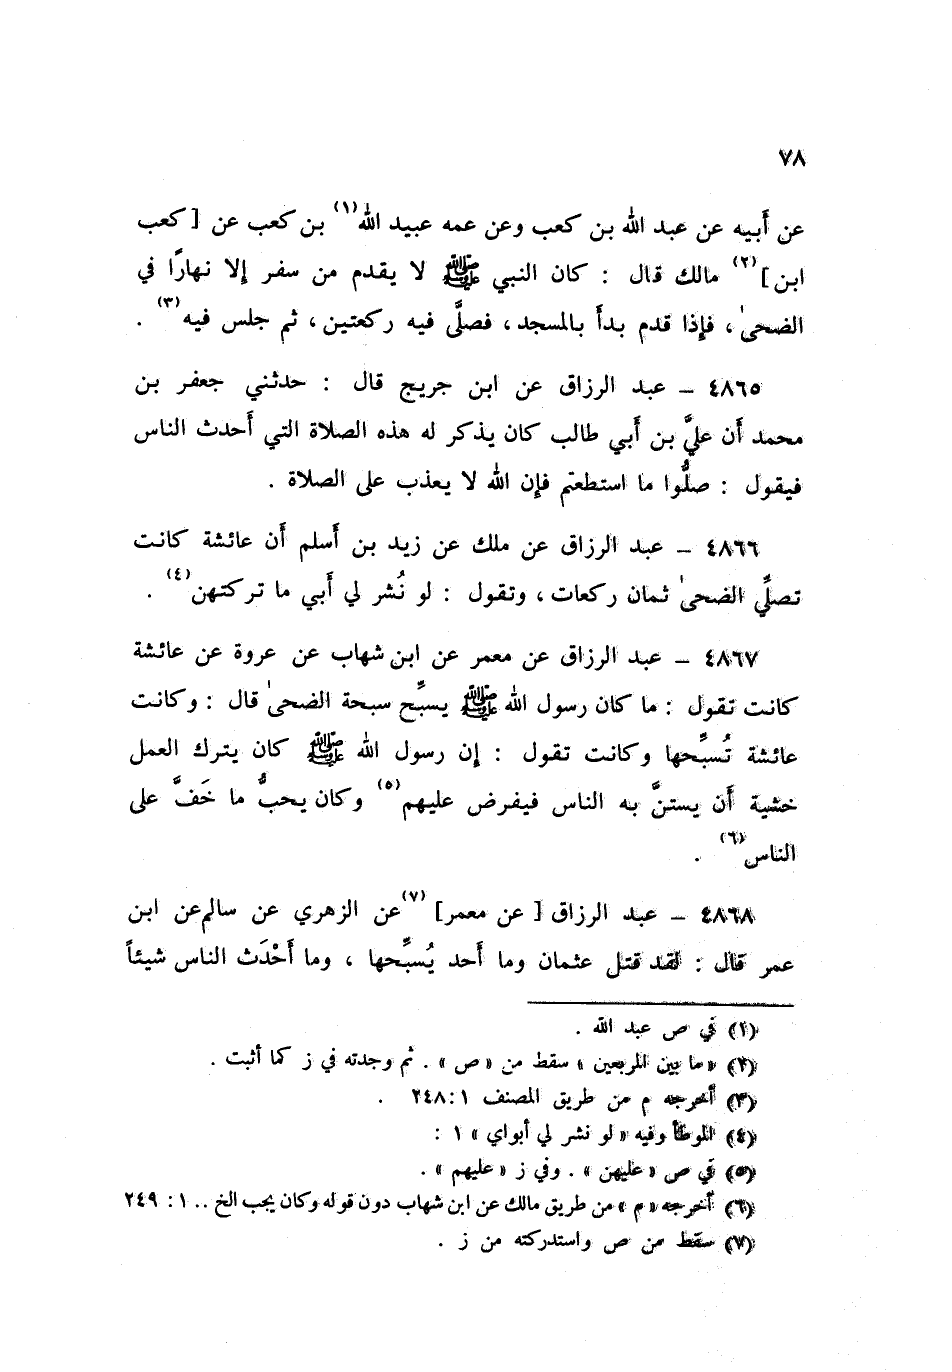 ٧٨
عن أَبيه عن عبد الله بن كعب وعن عمه عبيد الله(١) بن كعب عن [ كعب
ابن ](٢) مالك قال : كان النبي ﷺ لا يقدم من سفر إلا نهارًا في
الضحىٰ، فإذا قدم بدأَ بالمسجد، فصلَّى فيه ركعتين، ثم جلس فيه(٣) .
٤٨٦٥ – عبد الرزاق عن ابن جريج قال : حدثني جعفر بن
محمد أَن عليَّ بن أَبي طالب كان يذكر له هذه الصلاة التي أَحدث الناس
فيقول : صلُّوا ما استطعتم فإن الله لا يعذب على الصلاة .
٤٨٦٦ – عبد الرزاق عن ملك عن زيد بن أَسلم أَن عائشة كانت
تصلِّي الضحىٰ ثمان ركعات، وتقول : لو نُشر لي أَبي ما تركتهن(٤) .
٤٨٦٧ – عبد الرزاق عن معمر عن ابن شهاب عن عروة عن عائشة
كانت تقول : ما كان رسول الله ﷺ يسبِّح سبحة الضحىٰ قال : وكانت
عائشة تُسبِّحها وكانت تقول : إن رسول الله ﷺ كان يترك العمل
خشية أَن يستنَّ به الناس فيفرض عليهم(٥) وكان يحبُّ ما خَفَّ على
الناس(٦) .
٤٨٦٨ – عبد الرزاق [ عن معمر](٧) عن الزهري عن سالم عن ابن
عمر قال : لقد قتل عثمان وما أَحد يُسبِّحها ، وما أَحْدَث الناس شيئاً
(١) في ص عبد الله .
(٢) «ما بين المربعين» سقط من «ص» . ثم وجدته في ز كما أثبت .
(٣) أخرجه م من طريق المصنف ١ : ٢٤٨ .
(٤) الموطأ وفيه «لو نشر لي أبواي» ١ :
(٥) في ص «عليهن» . وفي ز «عليهم» .
(٦) أخرجه «م» من طريق مالك عن ابن شهاب دون قوله وكان يحب الخ .. ١ : ٢٤٩
(٧) سقط من ص واستدركته من ز .